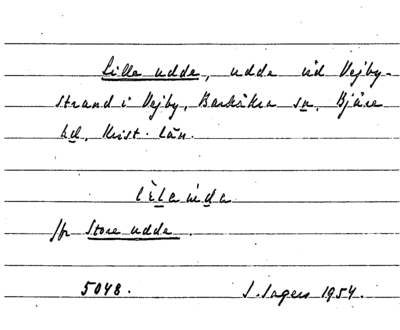 Lille udde, udde vid Vejby-
strand i Vejby, Barkåkra sn, Bjäre
hd, Krist. län.
lìla ùda
Jfr Store udde.
5048. S. Sagers 1954.